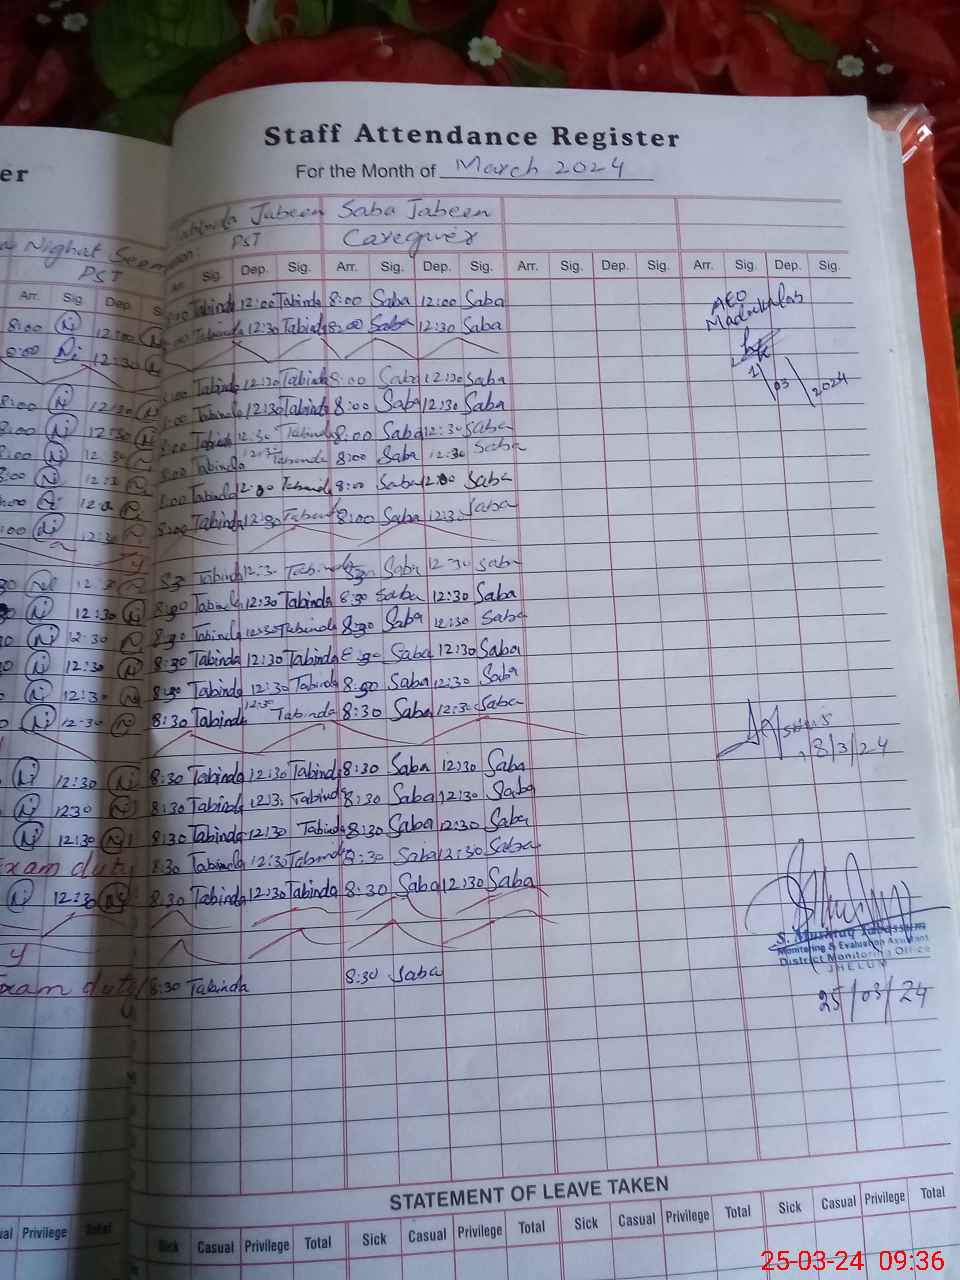 er
Staff Attendance Register
For the Month of March 2024
Tabinda Jabeen Saba Jabeen
Nighat PST Caregiver
PST
Arr. Sig. Dep. S Arr. Sig. Dep. Sig. Arr. Sig. Dep. Sig. Arr. Sig. Dep. Sig. Arr. Sig. Dep. Sig.
8:00 Ni 12:00 Ni 8:00 Tabinda 12:00 Tabinda 8:00 Saba 12:00 Saba AEO
8:00 Ni 12:30 Tabinda 12:30 Tabinda 8:00 Saba 12:30 Saba
1/03/2024
8:00 Tabinda 12:30 Tabinda 8:00 Saba 12:30 Saba
8:00 Ni 12:30 8:00 Tabinda 12:30 Tabinda 8:00 Saba 12:30 Saba
8:00 Ni 12:30 8:00 Tabinda 12:30 Tabinda 8:00 Saba 12:30 Saba
8:00 Ni 12:30 8:00 Tabinda 12:30 Tabinda 8:00 Saba 12:30 Saba
8:00 Ni 8:00 Tabinda 12:00 Tabinda 8:00 Saba 12:00 Saba
:00 Ni 12:30 8:00 Tabinda 12:30 Tabinda 8:00 Saba 12:30 Saba
30 12:30 8:30 Tabinda 12:30 Tabinda 8:30 Saba 12:30 Saba
Ni 12:30 Ni 8:30 Tabinda 12:30 Tabinda 8:30 Saba 12:30 Saba
30 Ni 12:30 8:30 Tabinda 12:30 Tabinda 8:30 Saba 12:30 Saba
Ni 12:30 Ni 8:30 Tabinda 12:30 Tabinda 8:30 Saba 12:30 Saba
Ni 12:30 Ni 8:30 Tabinda 12:30 Tabinda 8:30 Saba 12:30 Saba
Ni 12:30 8:30 Tabinda 12:30 Tabinda 8:30 Saba 12:30 Saba
18/3/24
Ni 12:30 Ni 8:30 Tabinda 12:30 Tabinda 8:30 Saba 12:30 Saba
Ni 1230 Ni 8:30 Tabinda 12:30 Tabinda 8:30 Saba 12:30 Saba
Ni 12:30 Ni 8:30 Tabinda 12:30 Tabinda 8:30 Saba 12:30 Saba
Exam duty 8:30 Tabinda 12:30 Tabinda 8:30 Saba 12:30 Saba
Ni 12:30 Ni 8:30 Tabinda 12:30 Tabinda 8:30 Saba 12:30 Saba
Monitoring & Evaluation Assistant
District Monitoring Office
JHELUM
Exam duty 8:30 Tabinda 8:30 Saba
25/03/24
STATEMENT OF LEAVE TAKEN
ual Privilege Total Sick Casual Privilege Total Sick Casual Privilege Total Sick Casual Privilege Total Sick Casual Privilege Total
25-03-24 09:36